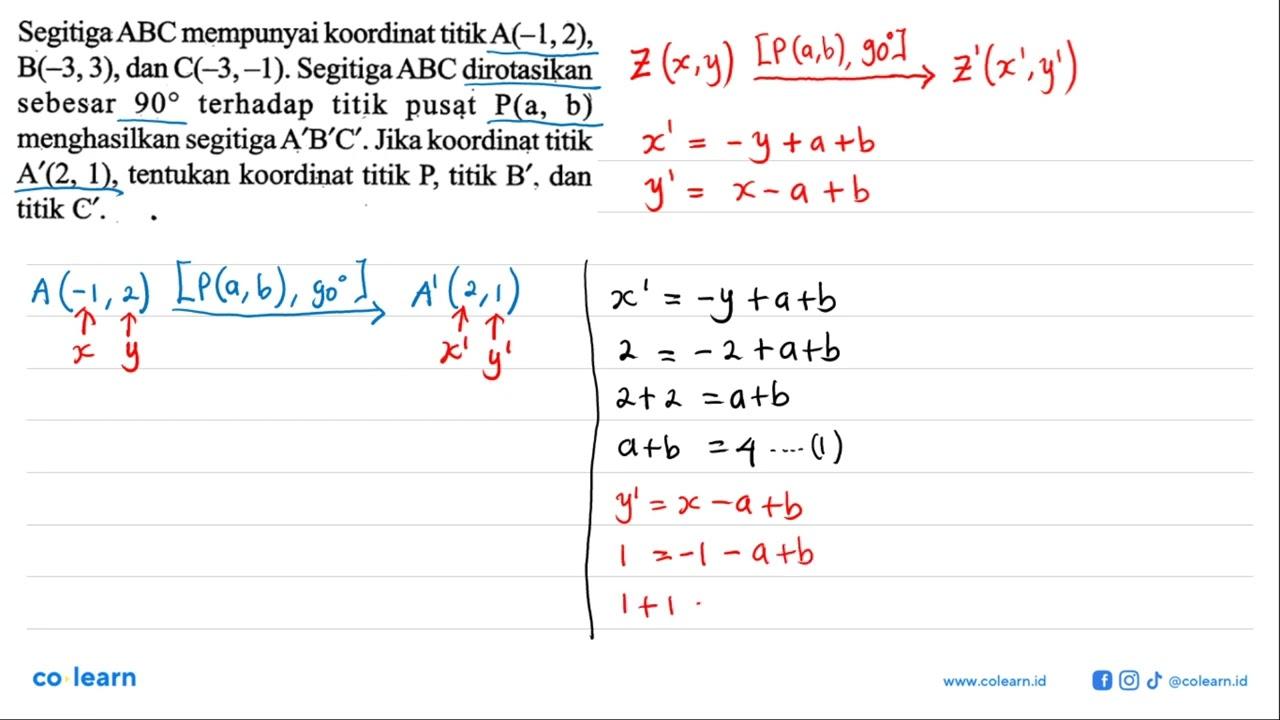 Segitiga ABC mempunyai koordinat titik A(–1, 2),
B(–3, 3), dan C(–3, –1). Segitiga ABC dirotasikan
sebesar 90° terhadap titik pusat P(a, b)
menghasilkan segitiga A′B′C′. Jika koordinat titik
A′(2, 1), tentukan koordinat titik P, titik B′, dan
titik C′.
Z(x,y) [P(a,b), 90°] → Z'(x',y')
x' = -y + a + b
y' = x - a + b
A(-1, 2) [P(a,b), 90°] → A'(2,1)
↑ ↑ ↑ ↑
x y x' y'
x' = -y + a + b
2 = -2 + a + b
2 + 2 = a + b
a + b = 4 ....(1)
y' = x - a + b
1 = -1 - a + b
1 + 1
co learn
www.colearn.id @colearn.id